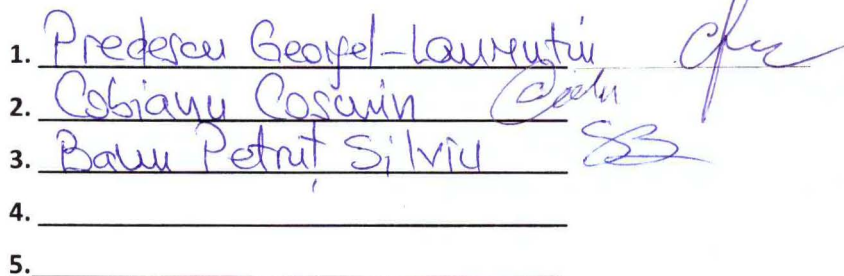 1. Predescu Georgel-Laurentiu
2. Cobianu Cosmin
3. Petruț Silviu
4.
5.